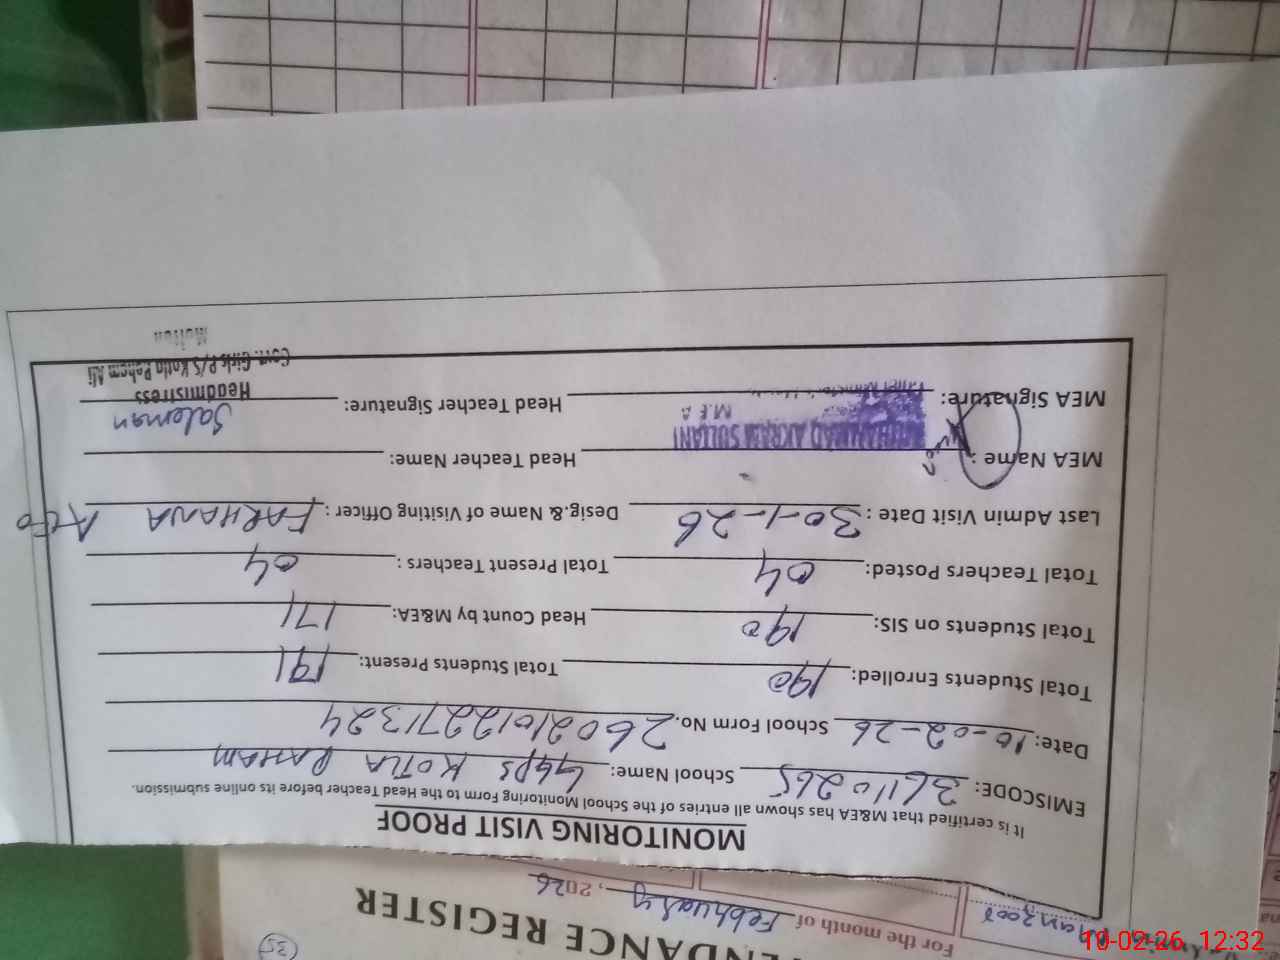 ENDANCE REGISTER
35
For the month of February, 2026
MONITORING VISIT PROOF
It is certified that M&EA has shown all entries of the School Monitoring Form to the Head Teacher before its online submission.
EMISCODE: 36110265 School Name: GGPS KOTLA RAHAM
Date: 10-02-26 School Form No. 26021012271324
Total Students Enrolled: 190 Total Students Present: 191
Total Students on SIS: 190 Head Count by M&EA: 171
Total Teachers Posted: 04 Total Present Teachers : 04
Last Admin Visit Date : 30-1-26 Desig.& Name of Visiting Officer : FARHANA AEO
MEA Name : Head Teacher Name:
MUHAMMAD AKRAM SULTANI
M.E.A
MEA Signature: Head Teacher Signature: Saleman
Headmistress
Govt. Girls P/S Kotla Rahem Ali
Multan
10-02-26 12:32